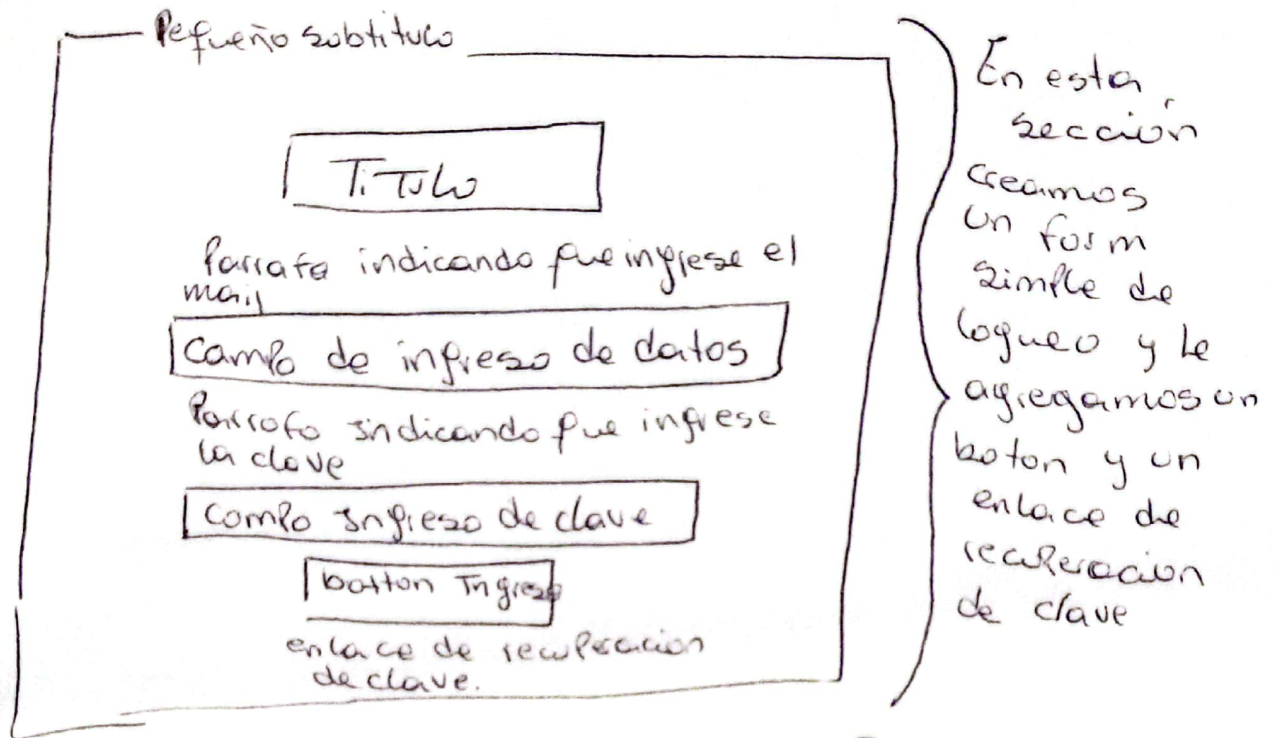 Pequeño subtitulo
TiTulo
Parrafo indicando que ingrese el
mail
Campo de ingreso de datos
Parrafo indicando que ingrese
la clave
Campo Ingreso de clave
botton Ingreso
enlace de recuperacion
de clave.
En esta
sección
creamos
un form
simple de
logueo y le
agregamos un
boton y un
enlace de
recuperacion
de clave